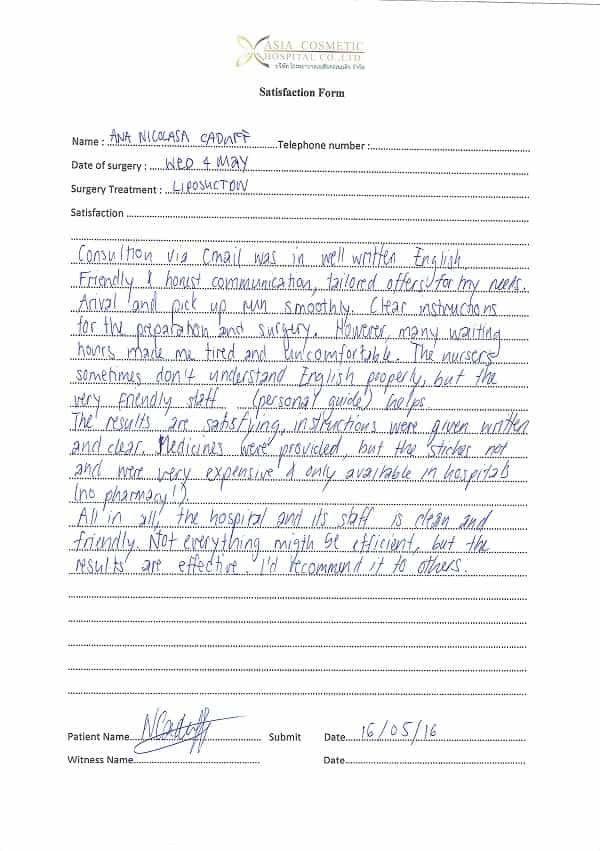 ASIA COSMETIC
HOSPITAL CO.,LTD
บริษัท โรงพยาบาลเอเชียคอสเมติก จำกัด
Satisfaction Form
Name : ANA NICOLASA CADUFF Telephone number :
Date of surgery : WED 4 MAY
Surgery Treatment : LIPOSUCTON
Satisfaction
Consultion via Email was in well written English.
Friendly & honist communication, tailored offers for my needs.
Arival and pick up run smoothly. Clear instructions
for the preparation and surgery. However, many waiting
hours made me tired and uncomfortable. The nurses
sometimes don't understand English properly, but the
very friendly staff (personal guide) helps.
The results are satisfying, instructions were given written
and clear. Medicines were provided, but the stiches not
and were very expensive & only available in hospitals
(no pharmacy!).
All in all, the hospital and its staff is clean and
friendly. Not everything migth be efficient, but the
results are effective. I'd recommend it to others.
Patient Name NCaduff Submit Date 16/05/16
Witness Name Date